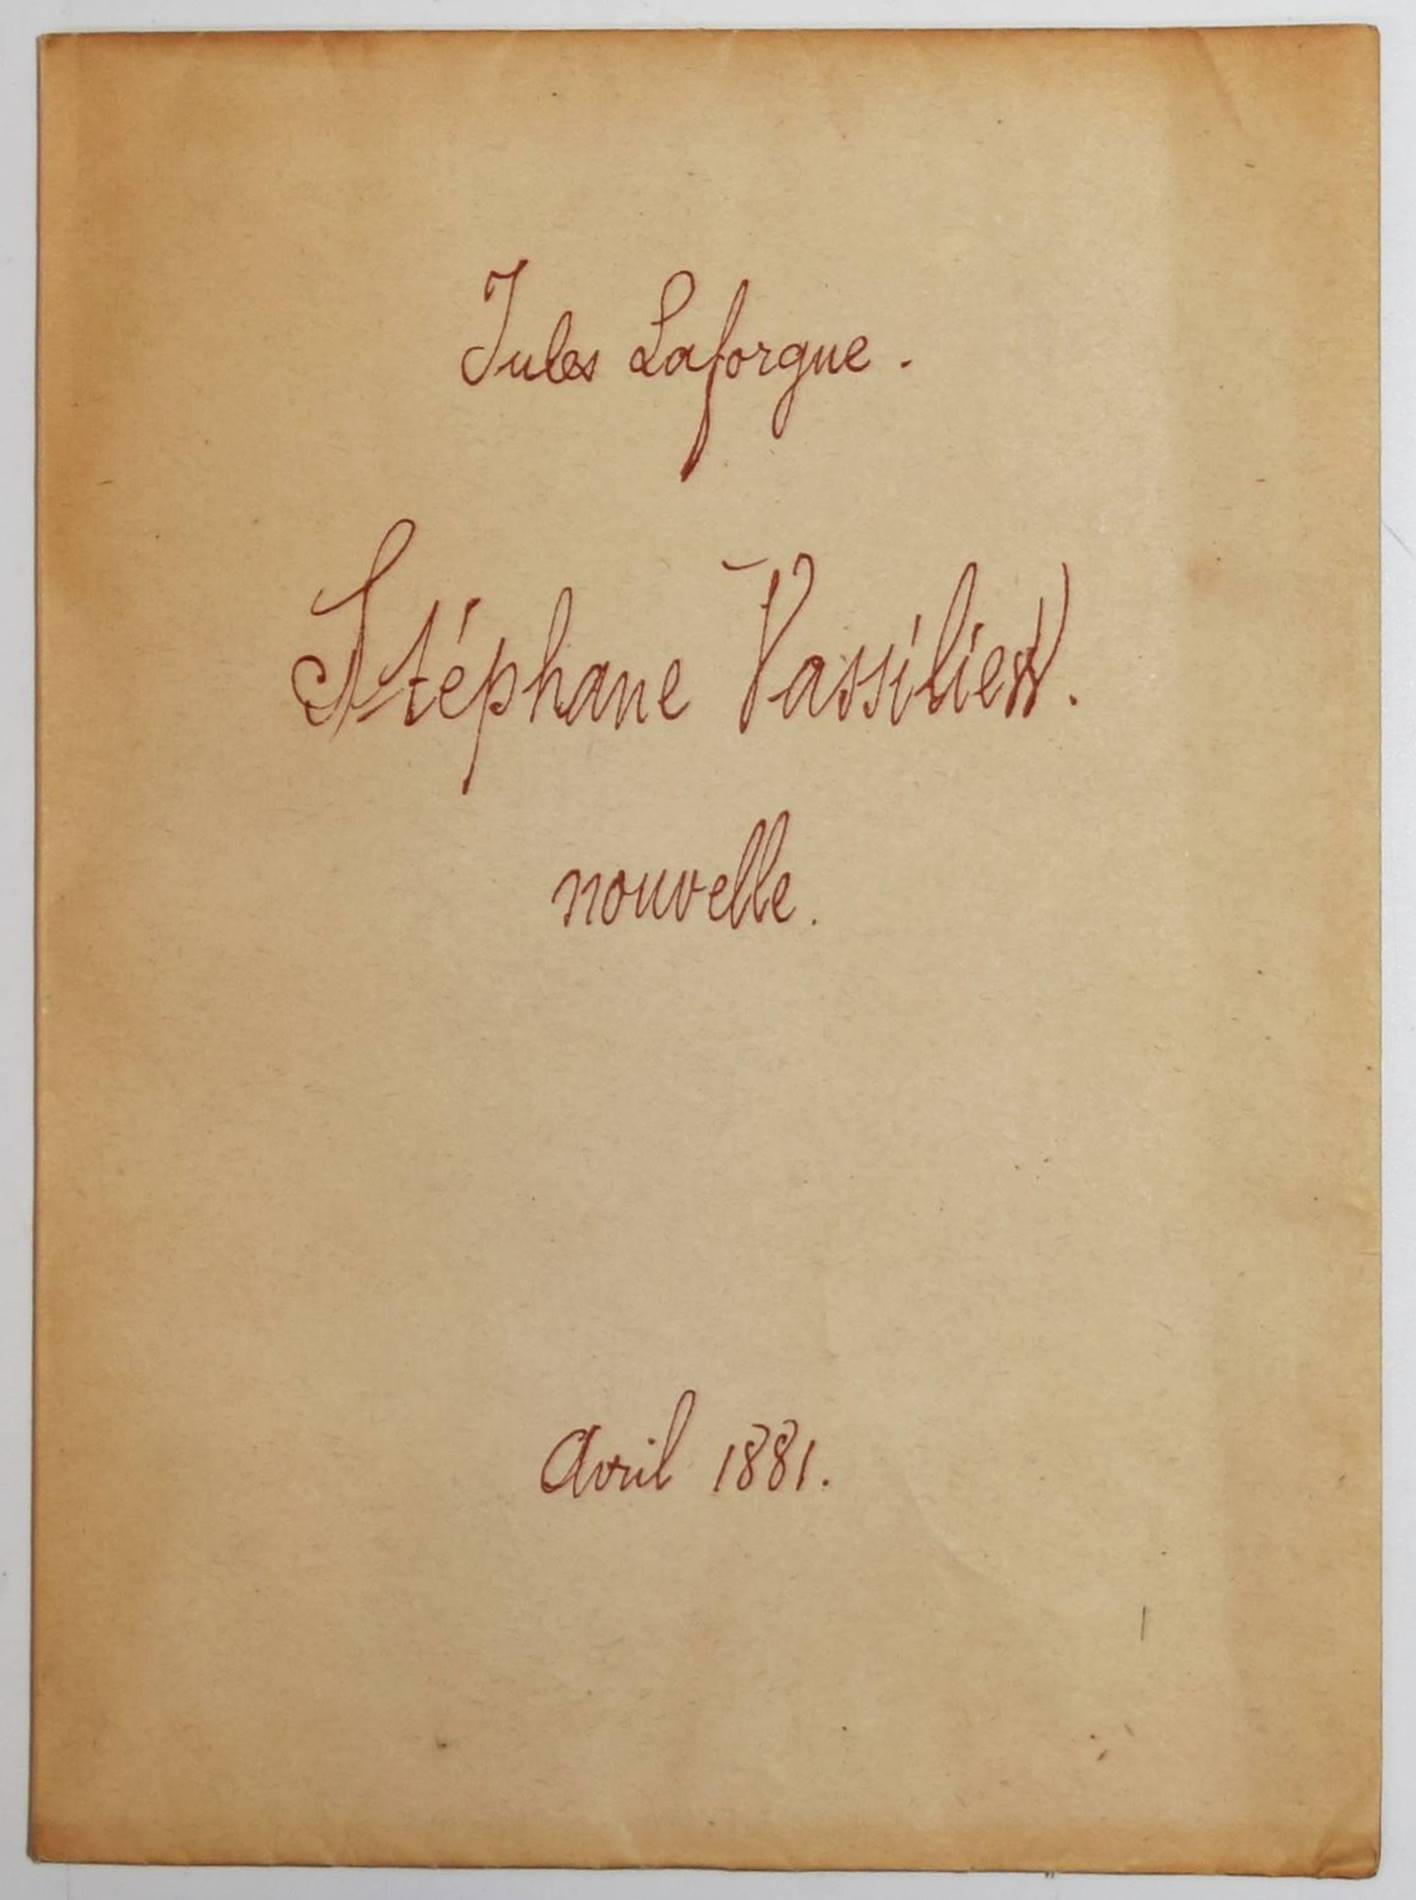 Jules Laforgue.
Stéphane Vassiliew.
nouvelle.
Avril 1881.